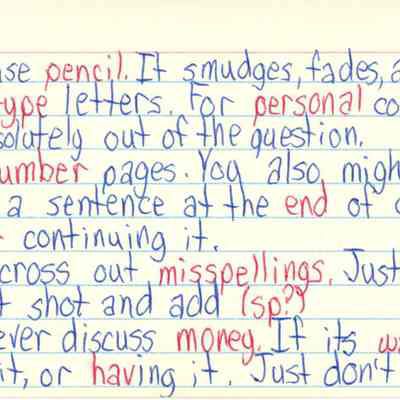 se pencil. It smudges, fades, a
type letters. For personal co
solutely out of the question.
umber pages. You also might
a sentence at the end of
continuing it.
cross out misspellings. Just
shot and add (sp?)
ever discuss money. If its w
it, or having it. Just don't